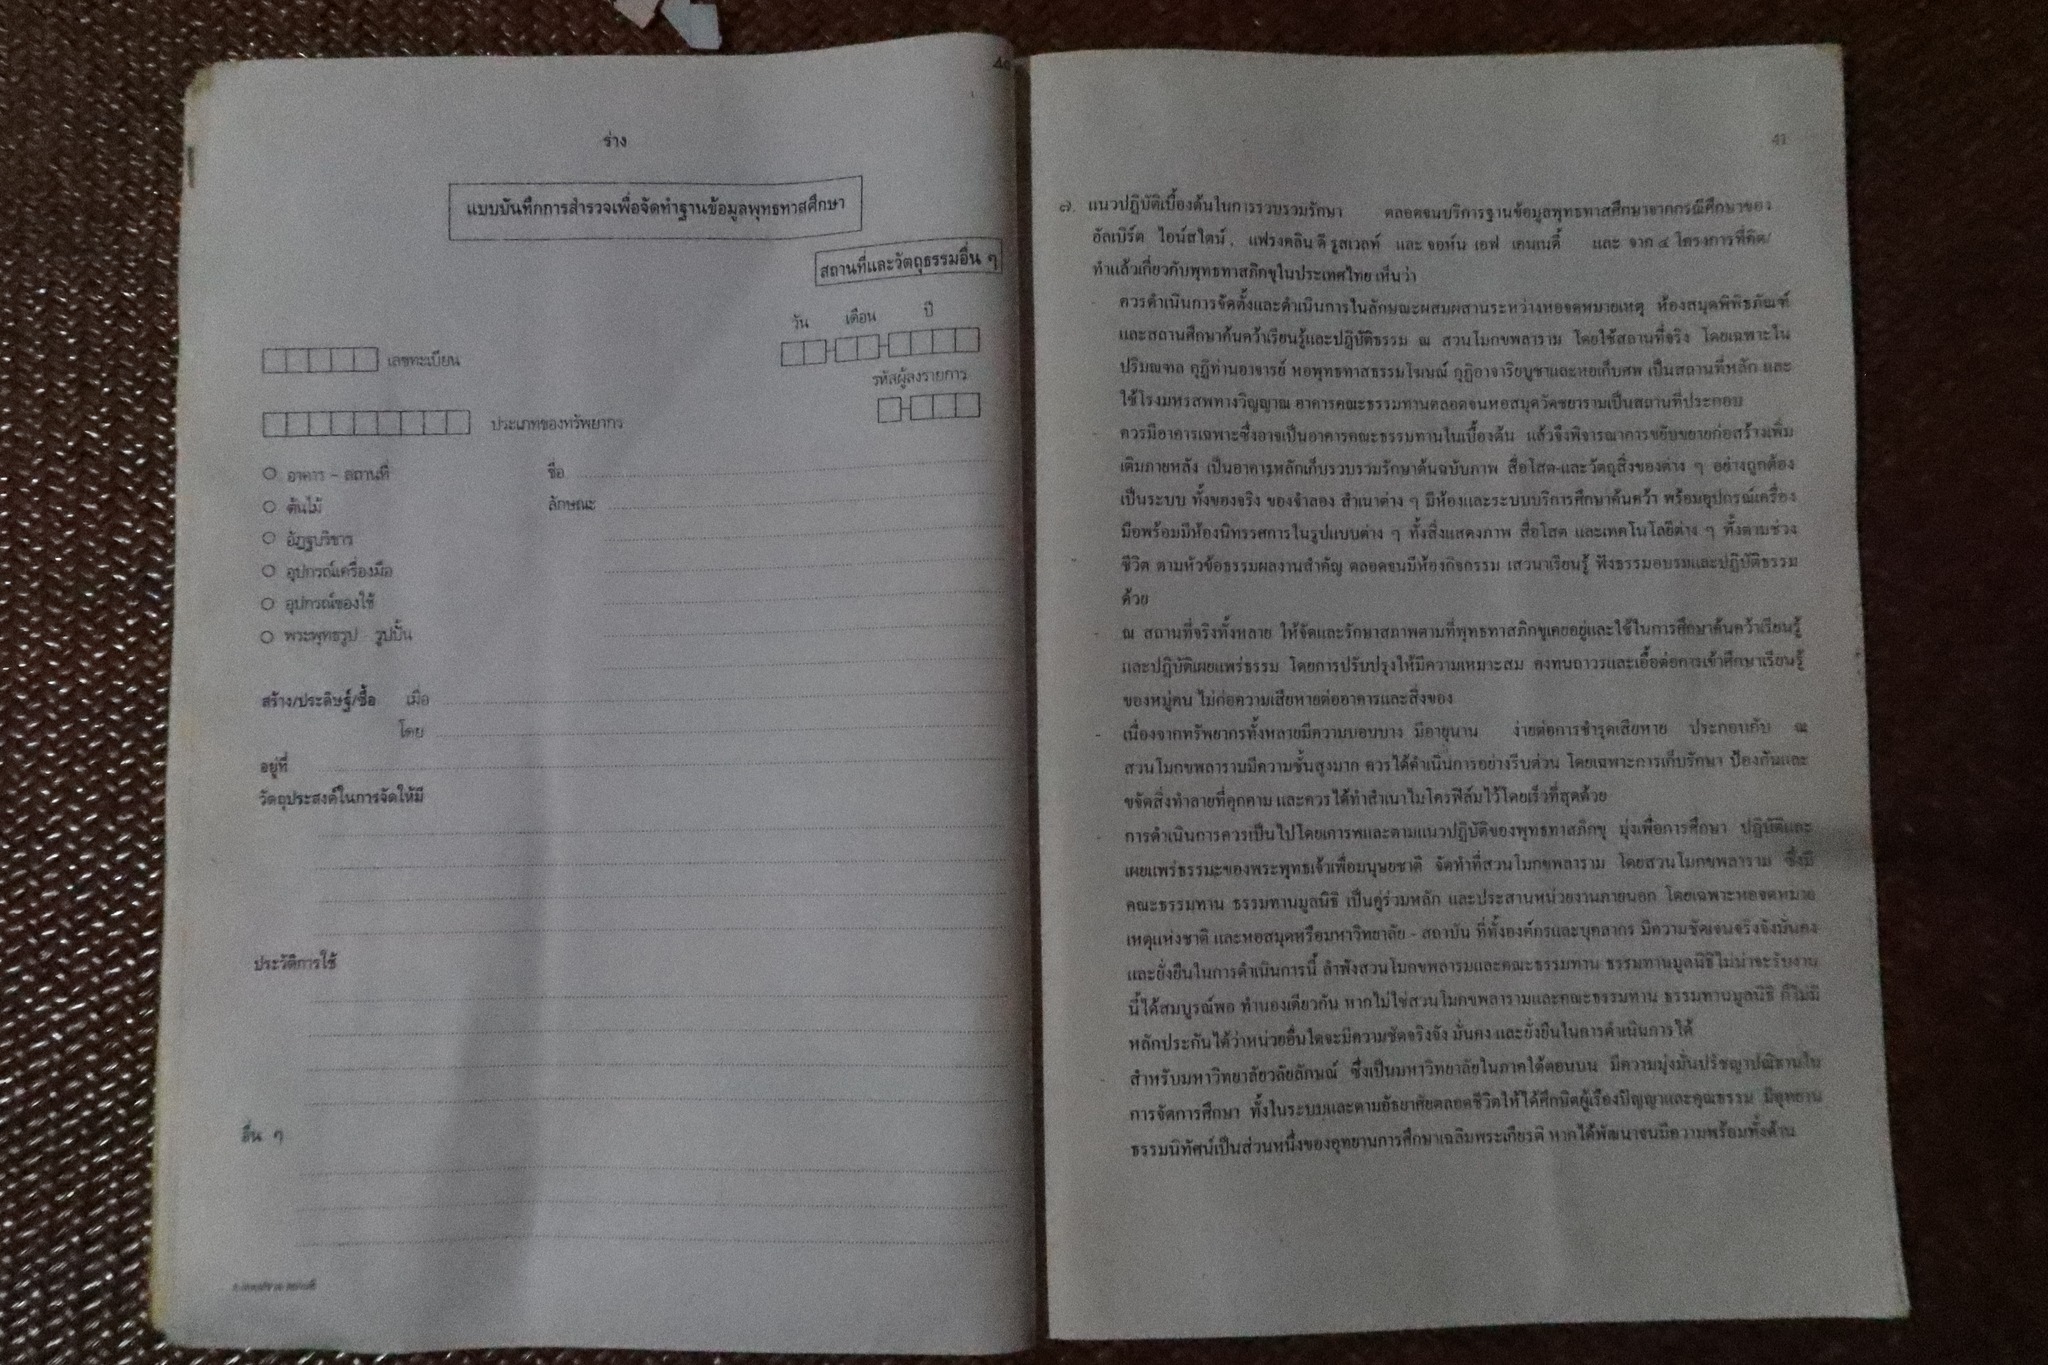 ร่าง
แบบบันทึกการสำรวจเพื่อจัดทำฐานข้อมูลพุทธทาสศึกษา
สถานที่และวัตถุธรรมอื่น ๆ
วัน เดือน ปี
เลขทะเบียน
รหัสผู้ลงรายการ
ประเภทของทรัพยากร
อาคาร - สถานที่ ชื่อ
ต้นไม้ ลักษณะ
อัฏฐบริขาร
อุปกรณ์เครื่องมือ
อุปกรณ์ของใช้
พระพุทธรูป รูปปั้น
สร้าง/ประดิษฐ์/ซื้อ เมื่อ
โดย
อยู่ที่
วัตถุประสงค์ในการจัดให้มี
ประวัติการใช้
อื่น ๆ
41
๗. แนวปฏิบัติเบื้องต้นในการรวบรวมรักษา ตลอดจนบริการฐานข้อมูลพุทธทาสศึกษาจากกรณีศึกษาของ
อัลเบิร์ต ไอน์สไตน์, แฟรงคลิน ดี รูสเวลท์ และ จอห์น เอฟ เคนเนดี้ และ จาก ๔ โครงการที่คิด/
ทำแล้วเกี่ยวกับพุทธทาสภิกขุในประเทศไทย เห็นว่า
- ควรดำเนินการจัดตั้งและดำเนินการในลักษณะผสมผสานระหว่างหอจดหมายเหตุ ห้องสมุดพิพิธภัณฑ์
และสถานศึกษาค้นคว้าเรียนรู้และปฏิบัติธรรม ณ สวนโมกขพลาราม โดยใช้สถานที่จริง โดยเฉพาะใน
ปริมณฑล กุฏิท่านอาจารย์ หอพุทธทาสธรรมโฆษณ์ กุฏิอาจาริยบูชาและหอเก็บศพ เป็นสถานที่หลัก และ
ใช้โรงมหรสพทางวิญญาณ อาคารคณะธรรมทานตลอดจนหอสมุดวัดชยารามเป็นสถานที่ประกอบ
- ควรมีอาคารเฉพาะซึ่งอาจเป็นอาคารคณะธรรมทานในเบื้องต้น แล้วจึงพิจารณาการขยับขยายก่อสร้างเพิ่ม
เติมภายหลัง เป็นอาคารหลักเก็บรวบรวมรักษาต้นฉบับภาพ สื่อโสต-และวัตถุสิ่งของต่าง ๆ อย่างถูกต้อง
เป็นระบบ ทั้งของจริง ของจำลอง สำเนาต่าง ๆ มีห้องและระบบบริการศึกษาค้นคว้า พร้อมอุปกรณ์เครื่อง
มือพร้อมมีห้องนิทรรศการในรูปแบบต่าง ๆ ทั้งสิ่งแสดงภาพ สื่อโสต และเทคโนโลยีต่าง ๆ ทั้งตามช่วง
ชีวิต ตามหัวข้อธรรมผลงานสำคัญ ตลอดจนมีห้องกิจกรรม เสวนาเรียนรู้ ฟังธรรมอบรมและปฏิบัติธรรม
ด้วย
- ณ สถานที่จริงทั้งหลาย ให้จัดและรักษาสภาพตามที่พุทธทาสภิกขุเคยอยู่และใช้ในการศึกษาค้นคว้าเรียนรู้
และปฏิบัติเผยแพร่ธรรม โดยการปรับปรุงให้มีความเหมาะสม คงทนถาวรและเอื้อต่อการเข้าศึกษาเรียนรู้
ของหมู่คน ไม่ก่อความเสียหายต่ออาคารและสิ่งของ
- เนื่องจากทรัพยากรทั้งหลายมีความบอบบาง มีอายุนาน ง่ายต่อการชำรุดเสียหาย ประกอบกับ ณ
สวนโมกขพลารามมีความชื้นสูงมาก ควรได้ดำเนินการอย่างรีบด่วน โดยเฉพาะการเก็บรักษา ป้องกันและ
ขจัดสิ่งทำลายที่คุกคาม และควรได้ทำสำเนาไมโครฟิล์มไว้โดยเร็วที่สุดด้วย
- การดำเนินการควรเป็นไปโดยเคารพและตามแนวปฏิบัติของพุทธทาสภิกขุ มุ่งเพื่อการศึกษา ปฏิบัติและ
เผยแพร่ธรรมะของพระพุทธเจ้าเพื่อมนุษยชาติ จัดทำที่สวนโมกขพลาราม โดยสวนโมกขพลาราม ซึ่งมี
คณะธรรมทาน ธรรมทานมูลนิธิ เป็นคู่ร่วมหลัก และประสานหน่วยงานภายนอก โดยเฉพาะหอจดหมาย
เหตุแห่งชาติ และหอสมุดหรือมหาวิทยาลัย - สถาบัน ที่ทั้งองค์กรและบุคลากร มีความชัดเจนจริงจังมั่นคง
และยั่งยืนในการดำเนินการนี้ ลำพังสวนโมกขพลารามและคณะธรรมทาน ธรรมทานมูลนิธิไม่น่าจะรับงาน
นี้ได้สมบูรณ์พอ ทำนองเดียวกัน หากไม่ใช่สวนโมกขพลารามและคณะธรรมทาน ธรรมทานมูลนิธิ ก็ไม่มี
หลักประกันได้ว่าหน่วยอื่นใดจะมีความชัดจริงจัง มั่นคง และยั่งยืนในการดำเนินการได้
- สำหรับมหาวิทยาลัยวลัยลักษณ์ ซึ่งเป็นมหาวิทยาลัยในภาคใต้ตอนบน มีความมุ่งมั่นปรัชญาปณิธานใน
การจัดการศึกษา ทั้งในระบบและตามอัธยาศัยตลอดชีวิตให้ได้ศึกษิตผู้เรืองปัญญาและคุณธรรม มีอุทยาน
ธรรมนิทัศน์เป็นส่วนหนึ่งของอุทยานการศึกษาเฉลิมพระเกียรติ หากได้พัฒนาจนมีความพร้อมทั้งด้าน